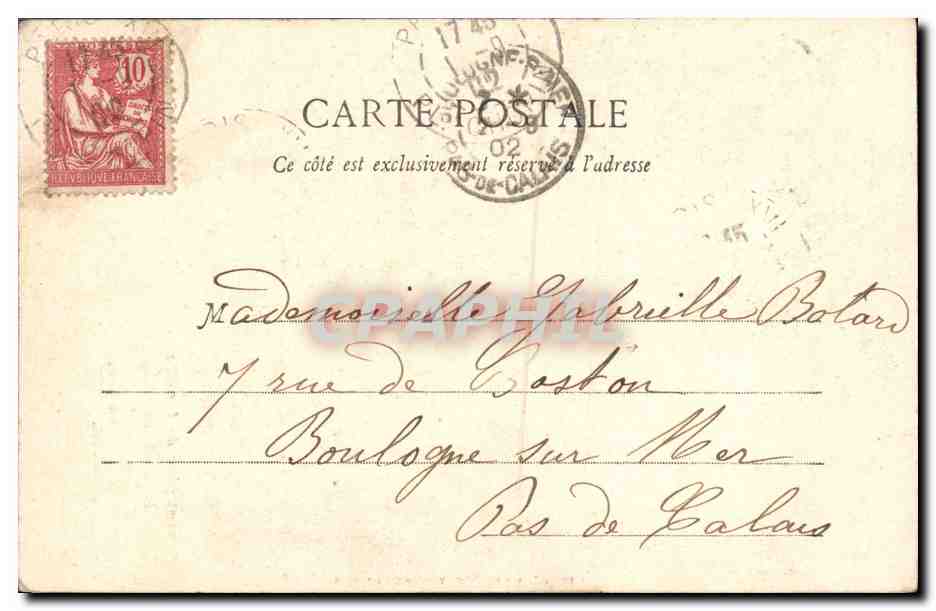 10
REPVBLIQUE FRANÇAISE
17 45
BOULOGNE-S-MER
02
PAS-DE-CALAIS
CARTE POSTALE
Ce côté est exclusivement réservé à l'adresse
45
CPAPHIL
Mademoiselle Gabrielle Botard
7 rue de Boston
Boulogne sur Mer
Pas de Calais